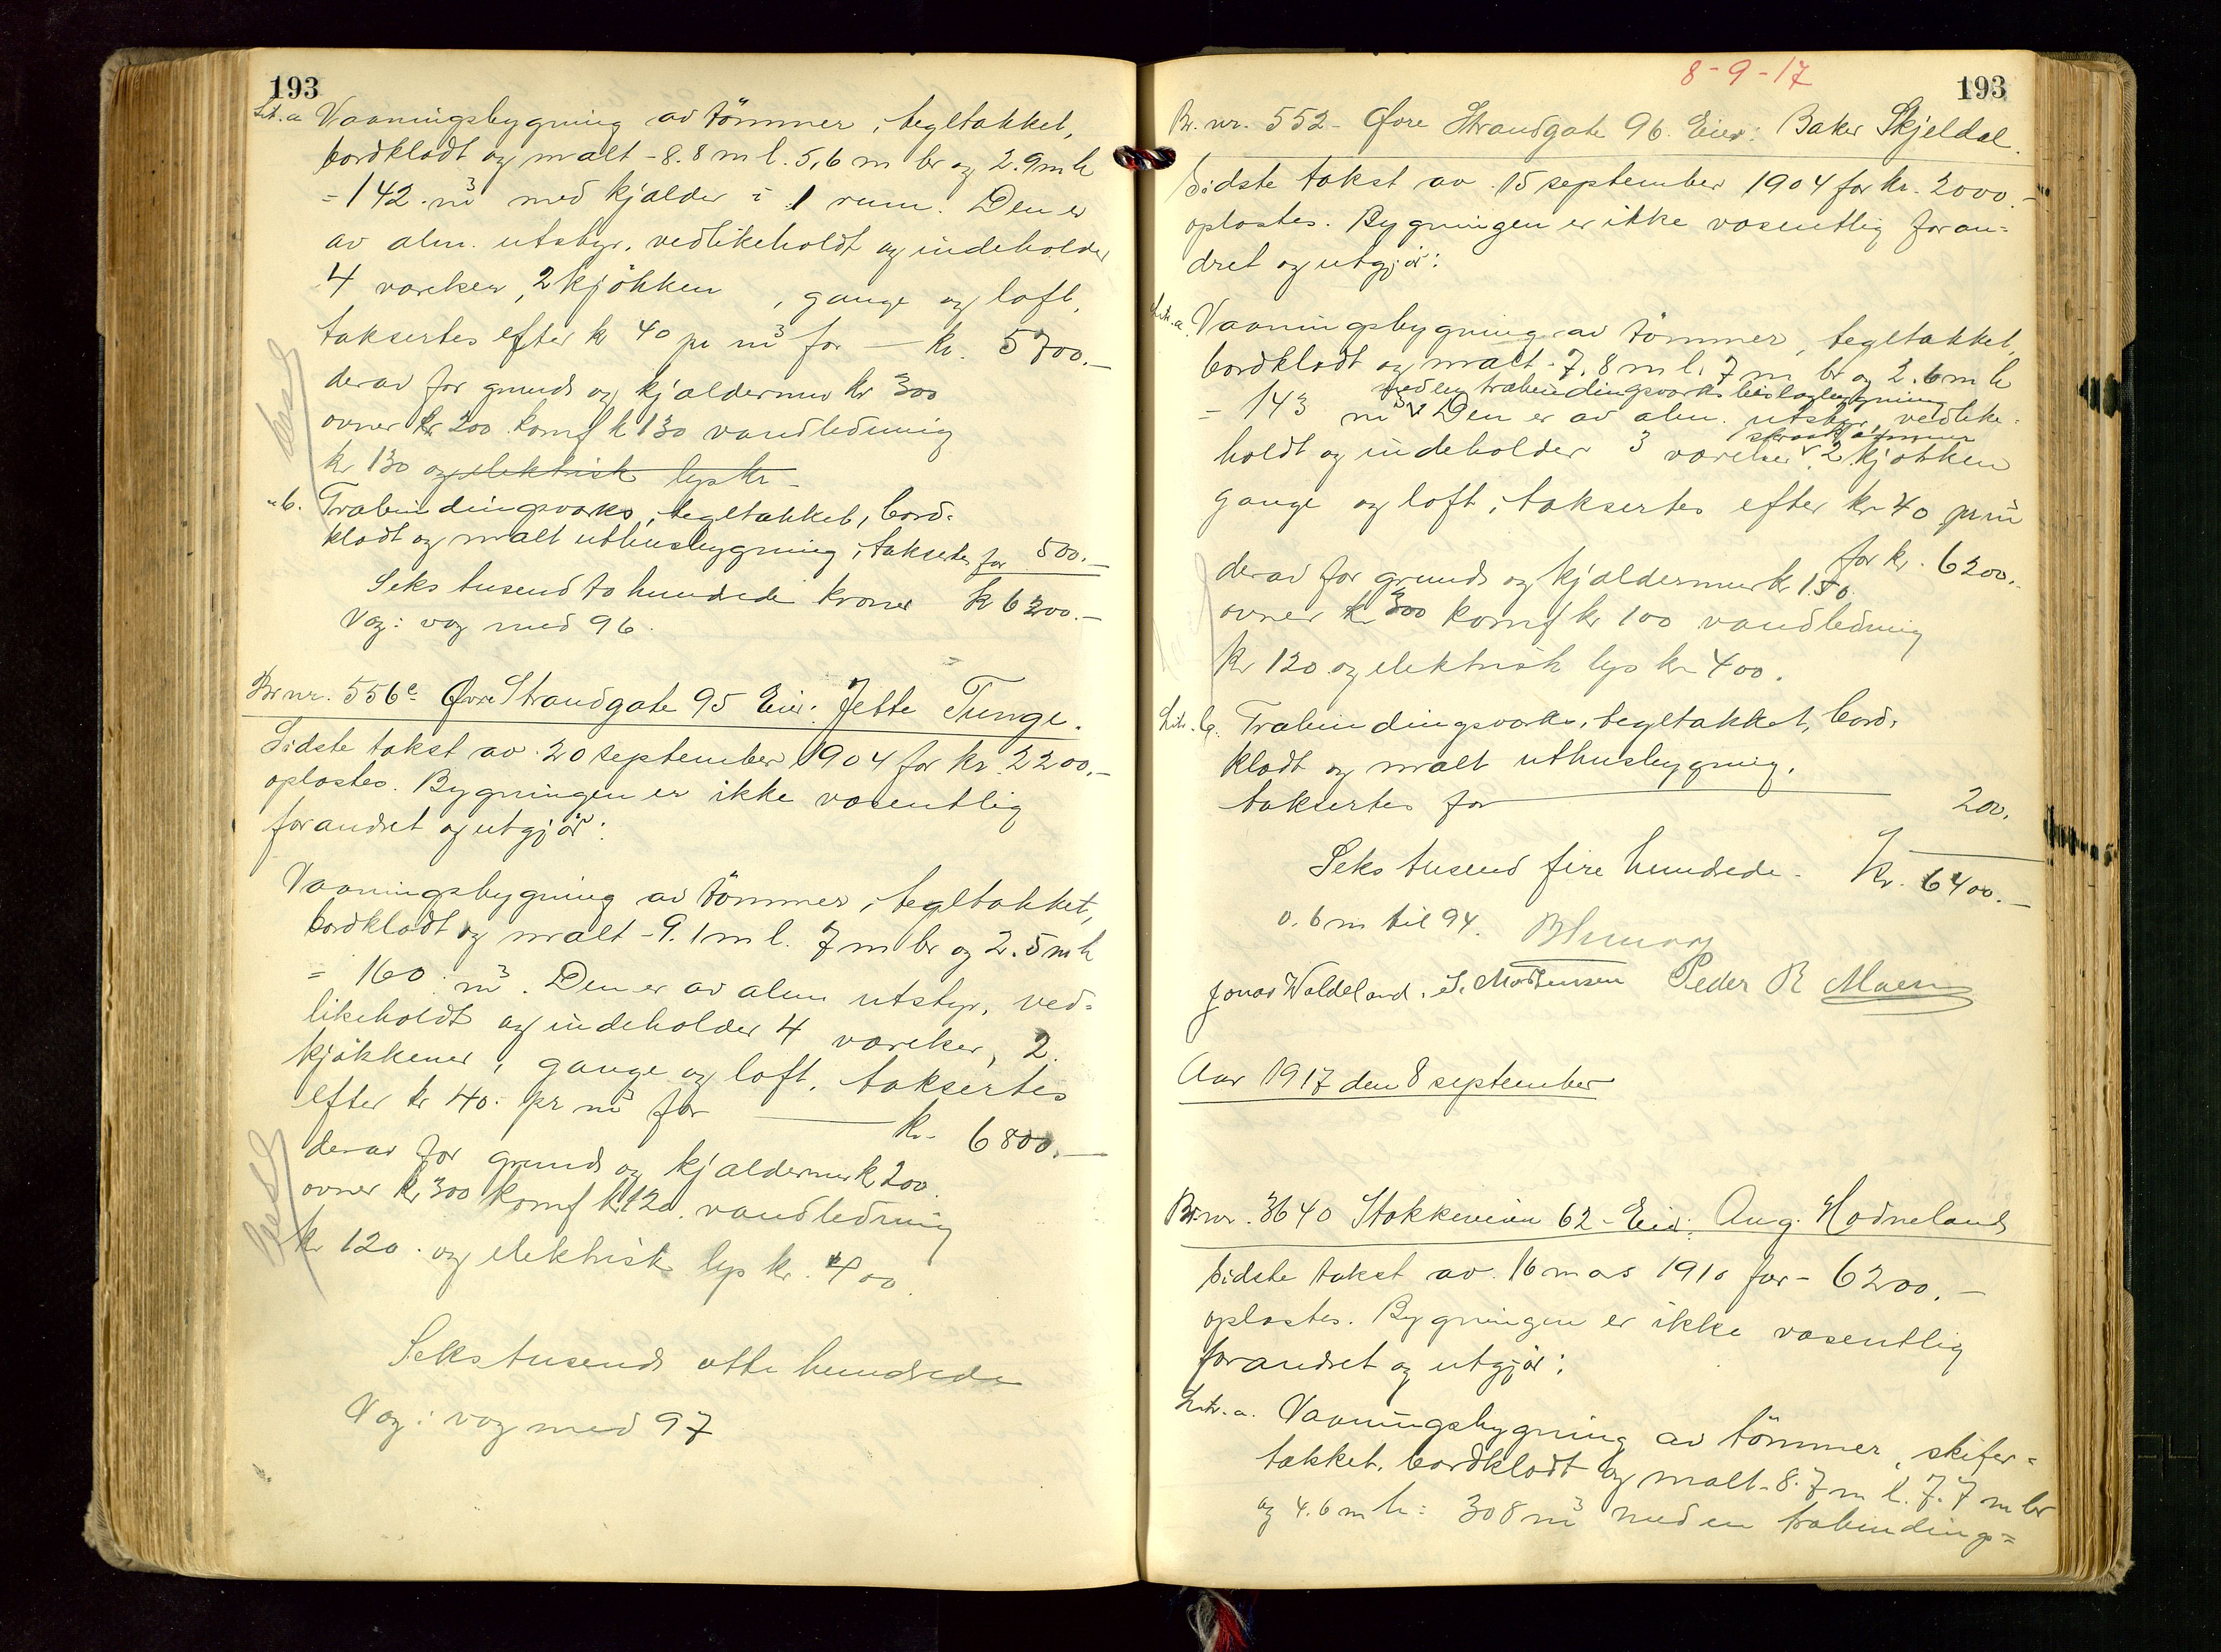 193
Lit. a Vaaningsbygning av tömmer, tegltækket,
bordklædt og malt - 8.8 m l. 5,6 m br og 2.9 m h
= 142 m³ med kjælder i 1 rum. Den er
av alm. utstyr, vedlikeholdt og indeholder
4 værelser, 2 kjökken, gange og loft,
taksertes efter kr 40 pr m³ for — kr. 5700.—
derav for grund og kjældermur kr 300
ovner kr 200 komf kr 130 vandledning
kr 130 og elektrisk lys kr -
" b. Træbindingsværks, tegltækket, bord-
klædt og malt uthusbygning, taksertes for 500.—
Seks tusend to hundrede kroner kr 6200.—
Væg i væg med 96.
Br nr. 556c Øvre Strandgate 95 Eier: Jette Tunge.
Sidste takst av 20 september 1904 for kr. 2200.—
oplæstes. Bygningen er ikke væsentlig
forandret og utgjör:
Vaaningsbygning av tömmer, tegltækket,
bordklædt og malt - 9.1 m l. 7 m br og 2.5 m h
= 160 m³. Den er av alm utstyr, ved-
likeholdt og indeholder 4 værelser, 2
kjökkener, gange og loft, taksertes
efter kr 40. pr m³ for — kr. 6800.—
derav for grund og kjældermur kr 200.
ovner kr 300 komf kr 120. vandledning
kr 120. og elektrisk lys kr. 400.
Sekstusend otte hundrede
Væg i væg med 97
8-9-17
193
Br. nr. 552 - Øvre Strandgate 96. Eier: Baker Skjeldal.
Sidste takst av 15 september 1904 for kr. 2000.—
oplæstes. Bygningen er ikke væsentlig foran-
dret og utgjör:
Litr. a. Vaaningsbygning av tömmer, tegltækket,
bordklædt og malt - 7,8 m l. 7 m br og 2.6 m h
med en træbindingsværks
= 143 m³ Den er av alm. utstyr, vedlike-
holdt og indeholder 3 værelser, 2 kjökken
gange og loft, taksertes efter kr 40 pr m³
for kr. 6200.—
derav for grund og kjældermur kr 150.
ovner kr 300 komf kr 100 vandledning
kr 120 og elektrisk lys kr 400.
Litr. b. Træbindingsværks, tegltækket, bord-
klædt og malt uthusbygning,
taksertes for — 200.
Seks tusend fire hundrede - kr. 6400.—
0.6 m til 94.
Jonas Waldeland. S. Mortensen Peder R Moen
Aar 1917 den 8 september
Br nr. 3640 Stokkeveien 62 - Eier: Aug. Hodneland
Sidste takst av 16 mars 1910 for - 6200.—
oplæstes. Bygningen er ikke væsentlig
forandret og utgjör:
Litr. a. Vaaningsbygning av tömmer, skifer-
tækket, bordklædt og malt - 8.7 m l. 7.7 m br
og 4.6 m h = 308 m³ med en træbindings-